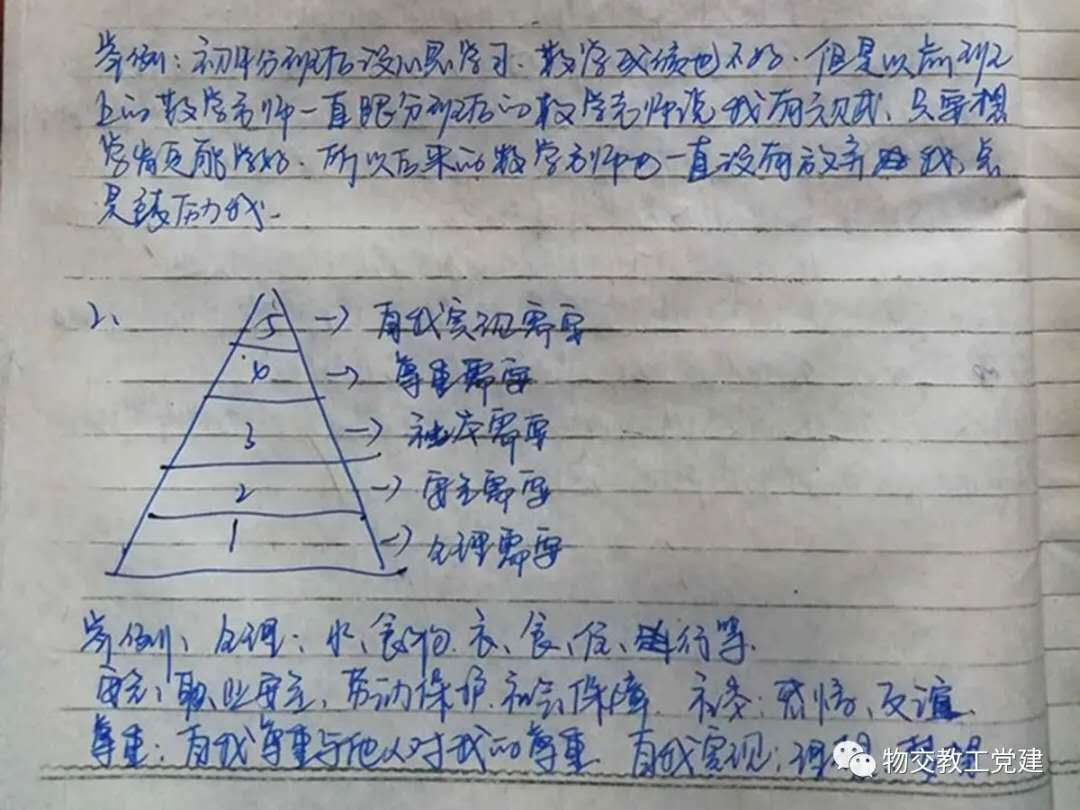 举例:初中分班后没心思学习.数学成绩也不好.但是以前班
上的数学老师一直跟分班后的数学老师说我有天赋、只要想
学肯定能学好.所以后来的数学老师也一直没有放弃我,总
是鼓励我.
2、
5 → 自我实现需要
4 → 尊重需要
3 → 社交需要
2 → 安全需要
1 → 生理需要
举例、生理:水、食物.衣、食、住、行等.
安全、职业安全、劳动保护.社会保障. 社交:感情、友谊
尊重:自我尊重与他人对我的尊重 自我实现:理想
物交教工党建